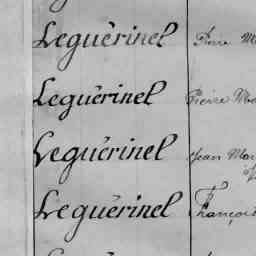 Leguérinel Pierre M
Leguérinel Pierre Ma
Leguérinel Jean Mar
Leguérinel François